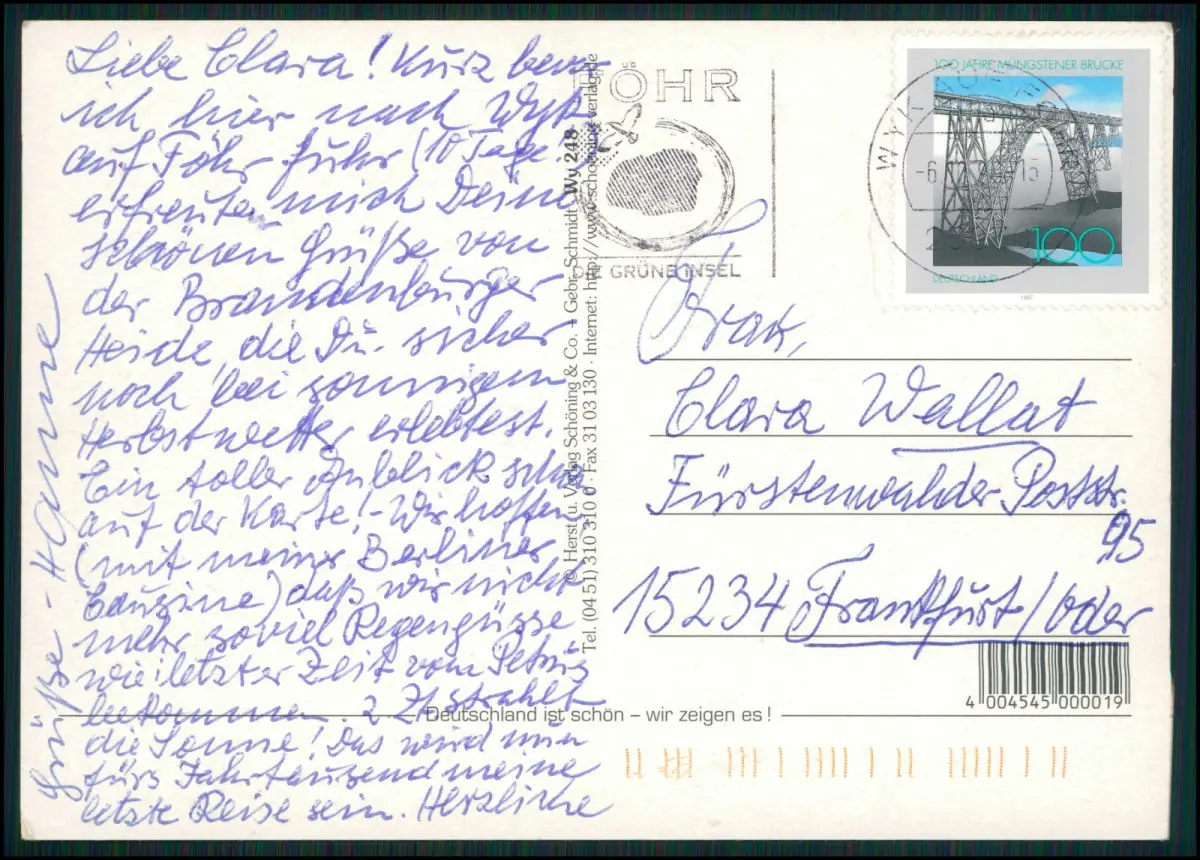 Liebe Clara! Kurz bevor
ich hier nach Wyk
auf Föhr fuhr (10 Tage)
erfreuten mich Deine
schönen Grüße von
der Brandenburger
Heide, die Du sicher
noch bei sonnigem
Herbstwetter erlebtest.
Ein toller Anblick schon
auf der Karte! - Wir hoffen
(mit meiner Berliner
Cousine) daß wir nicht
mehr soviel Regengüsse
wie letzter Zeit vom Petrus
bekommen. z. Zt strahlt
die Sonne! Das wird nun
fürs Jahrtausend meine
letzte Reise sein. Herzliche
Grüße - Hanne
FÖHR
DIE GRÜNE INSEL
© Herst. u. Verlag Schöning & Co. + Gebr. Schmidt · Wy 248
Tel. (04 51) 310 310 · Fax 31 03 130 · Internet: http://www.schoening-verlag.de
100 JAHRE MÜNGSTENER BRÜCKE
100
DEUTSCHLAND
1997
Frau,
Clara Wallat
Fürstenwalder Poststr.
95
15234 Frankfurt/Oder
4 004545 000019
Deutschland ist schön – wir zeigen es!